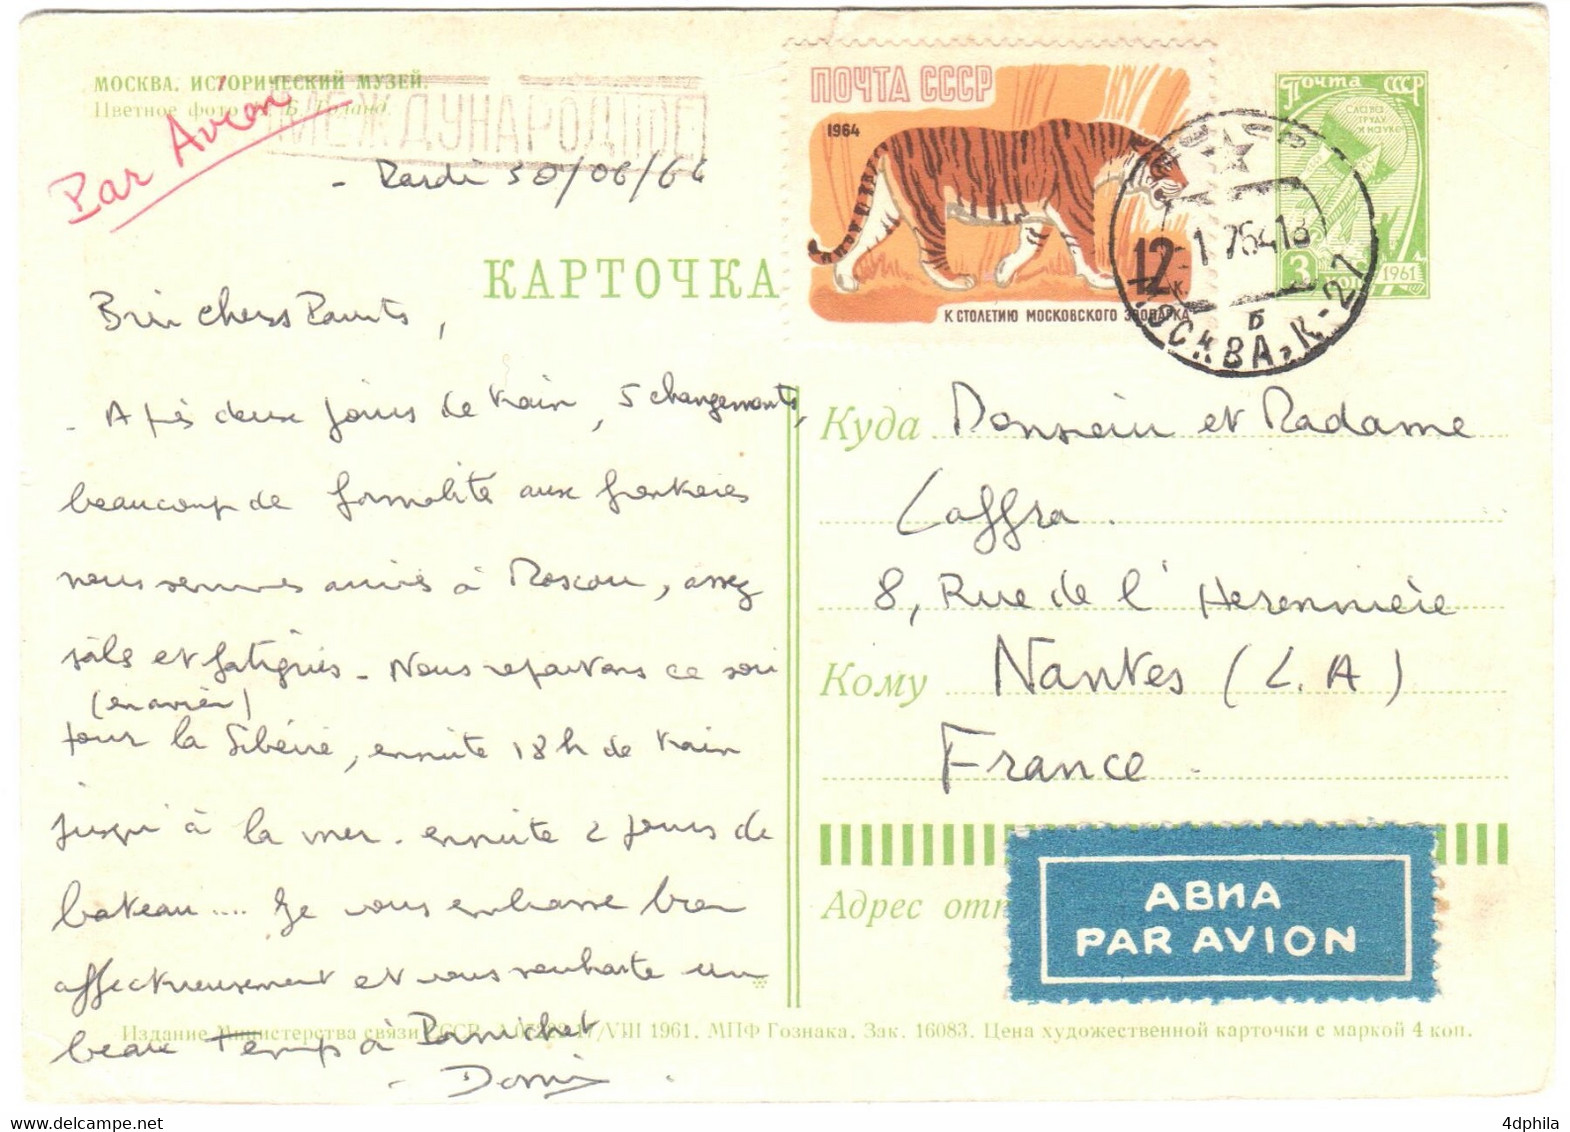 МОСКВА. ИСТОРИЧЕСКИЙ МУЗЕЙ.
Цветное фото Б.
Par Avion
МЕЖДУНАРОДНОЕ
- Mardi 30/06/64
КАРТОЧКА
ПОЧТА СССР
1964
12 к.
К СТОЛЕТИЮ МОСКОВСКОГО ЗООПАРКА
Почта СССР
СЛАВА
ТРУДУ
И НАУКЕ
3
1961
МОСКВА, К-27
Б
Bien chers Parents,
- Après deux jours de train, 5 changements,
beaucoup de formalités aux frontières
nous sommes arrivés à Moscou, assez
sâles et fatigués - Nous repartons ce soir
(en avion)
pour la Sibérie, ensuite 18h de train
jusqu'à la mer. ensuite 2 jours de
bateau.... Je vous embrasse bien
affectueusement et vous souhaite un
beau temps à Pornichet
Куда Monsieur et Madame
Laffra.
8, Rue de l'Heronnière
Кому Nantes (L.A)
France.
Адрес отп
АВИА
PAR AVION
Издание Министерства связи СССР. 17/VIII 1961. МПФ Гознака. Зак. 16083. Цена художественной карточки с маркой 4 коп.
4dphila